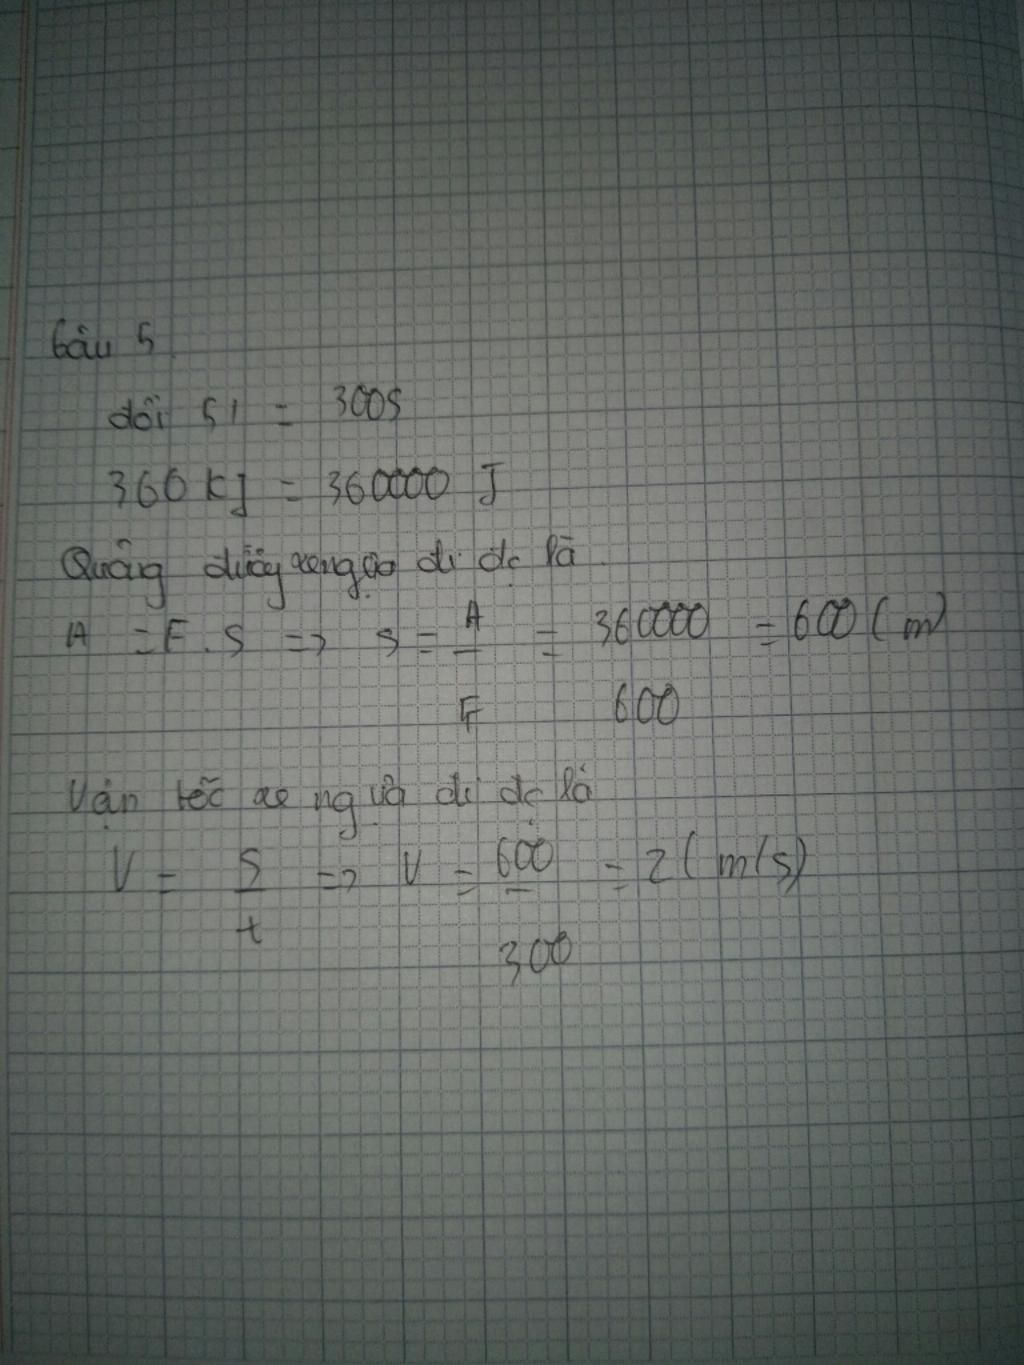 Câu 5
đổi 5' = 300s
360 KJ = 360000 J
Quãng đường xe ngựa đi đc là
A = F . S => S = A/F = 360000/600 = 600 (m)
Vận tốc xe ngựa đi đc là
V = S/t => V = 600/300 = 2 (m/s)